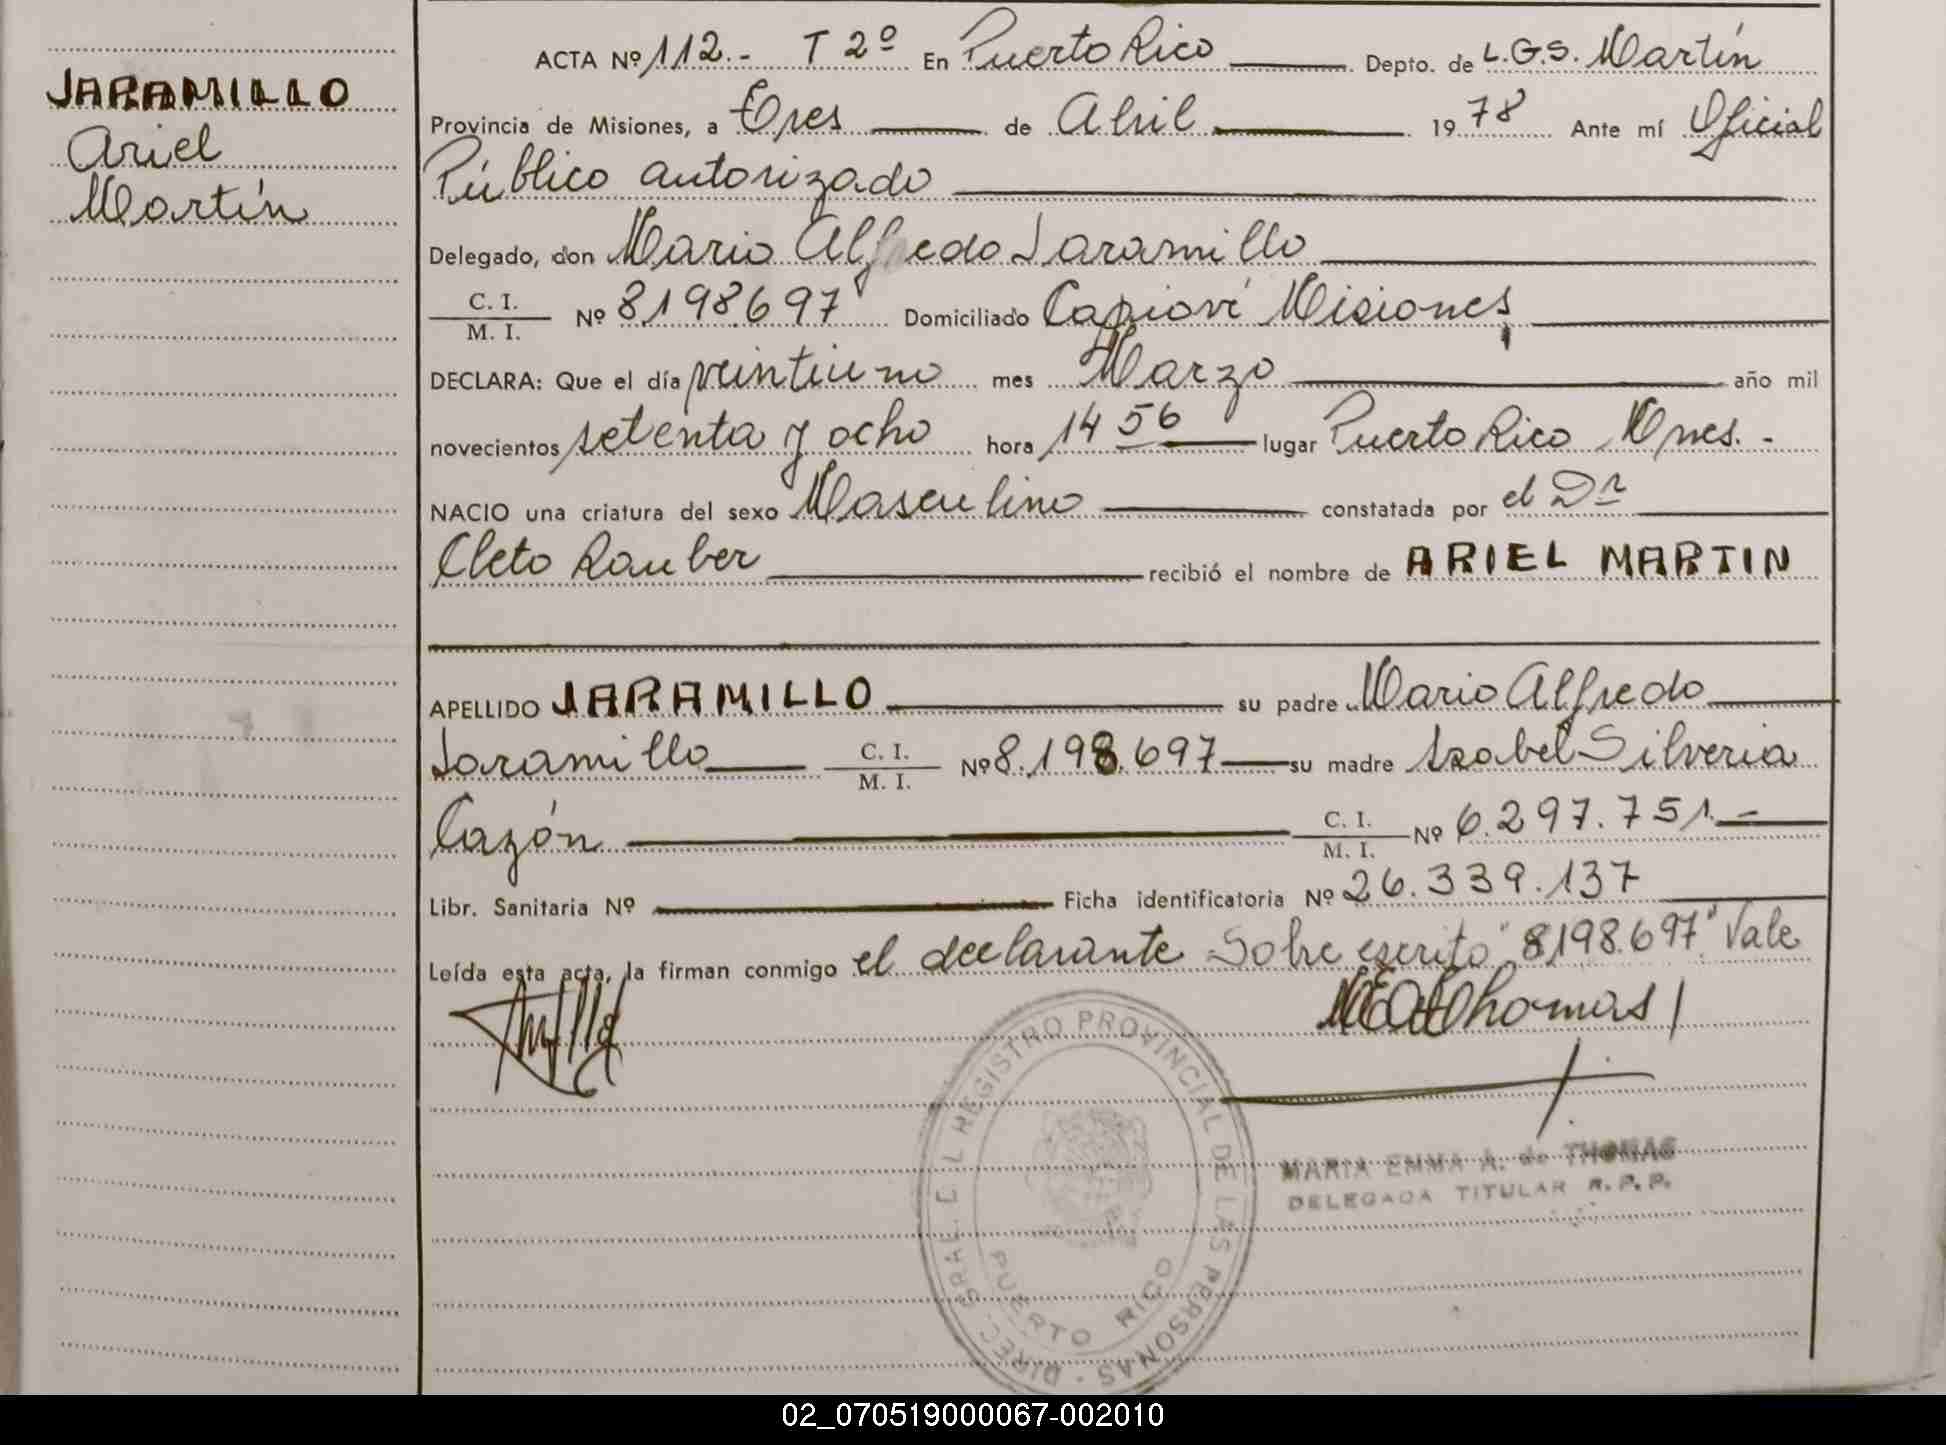 JARAMILLO
Ariel
Martín
ACTA Nº 112.- T 2º En Puerto Rico Depto. de L.G.S. Martín
Provincia de Misiones, a Tres de Abril 1978 Ante mí Oficial
Público autorizado
Delegado, don Mario Alfredo Jaramillo
C. I.
M. I. Nº 8.198.697 Domiciliado Capioví Misiones
DECLARA: Que el día veintiuno mes Marzo año mil
novecientos setenta y ocho hora 14 56 lugar Puerto Rico Mnes.-
NACIO una criatura del sexo Masculino constatada por el Dr
Cleto Rauber recibió el nombre de ARIEL MARTIN
APELLIDO JARAMILLO su padre Mario Alfredo
Jaramillo C. I. M. I. Nº 8.198.697 su madre Isabel Silveria
Cazón C. I. M. I. Nº 6.297.751.-
Libr. Sanitaria Nº Ficha identificatoria Nº 26.339.137
Leída esta acta, la firman conmigo el declarante Sobre escrito "8198.697" Vale
MEAThomas
DIREC. GRAL. DEL REGISTRO PROVINCIAL DE LAS PERSONAS
PUERTO RICO
MARIA EMMA A. de THOMAS
DELEGADA TITULAR R.P.P.
02_070519000067-002010